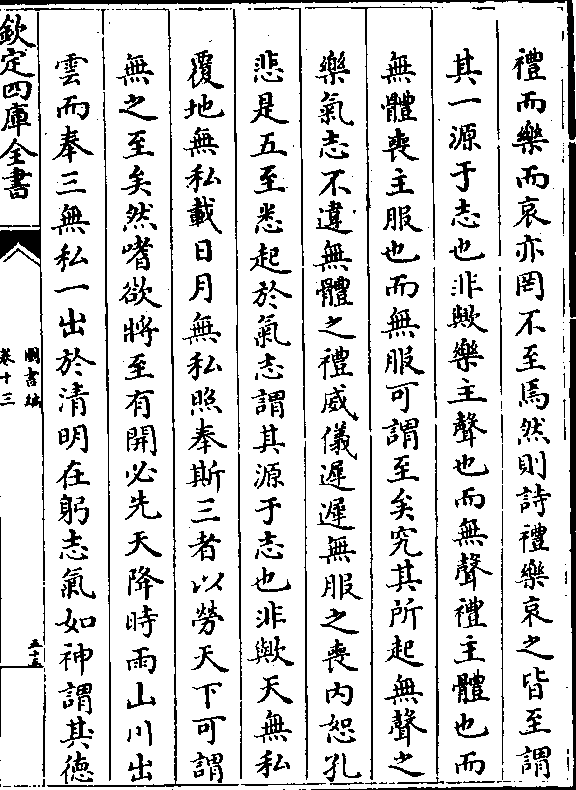 禮而樂而哀亦罔不至焉然則詩禮樂哀之皆至謂
其一源于志也非歟樂主聲也而無聲禮主體也而
無體喪主服也而無服可謂至矣究其所起無聲之
樂氣志不違無體之禮威儀遲遲無服之喪內恕孔
悲是五至悉起於氣志謂其源于志也非歟天無私
覆地無私載日月無私照奉斯三者以勞天下可謂
無之至矣然嗜欲將至有開必先天降時雨山川出
雲而奉三無私一出於清明在躬志氣如神謂其徳
欽定四庫全書
圖書編
卷十三
五十五